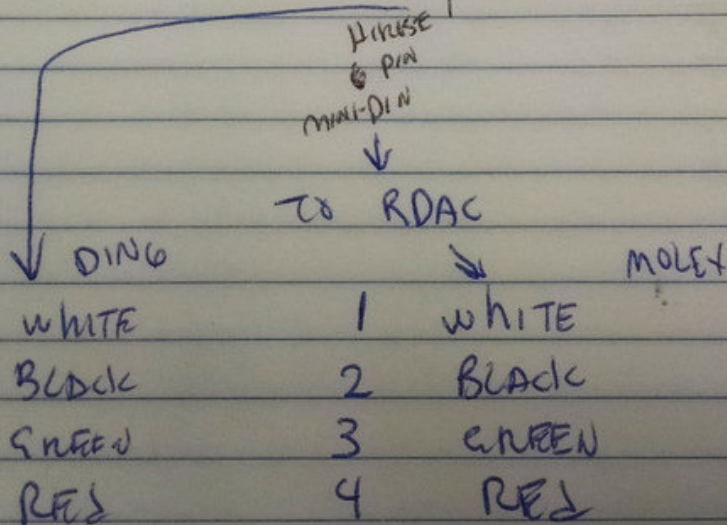 HIROSE
6 PIN
MINI-DIN
TO RDAC
DIN6 MOLEX
WHITE 1 WHITE
BLACK 2 BLACK
GREEN 3 GREEN
RED 4 RED